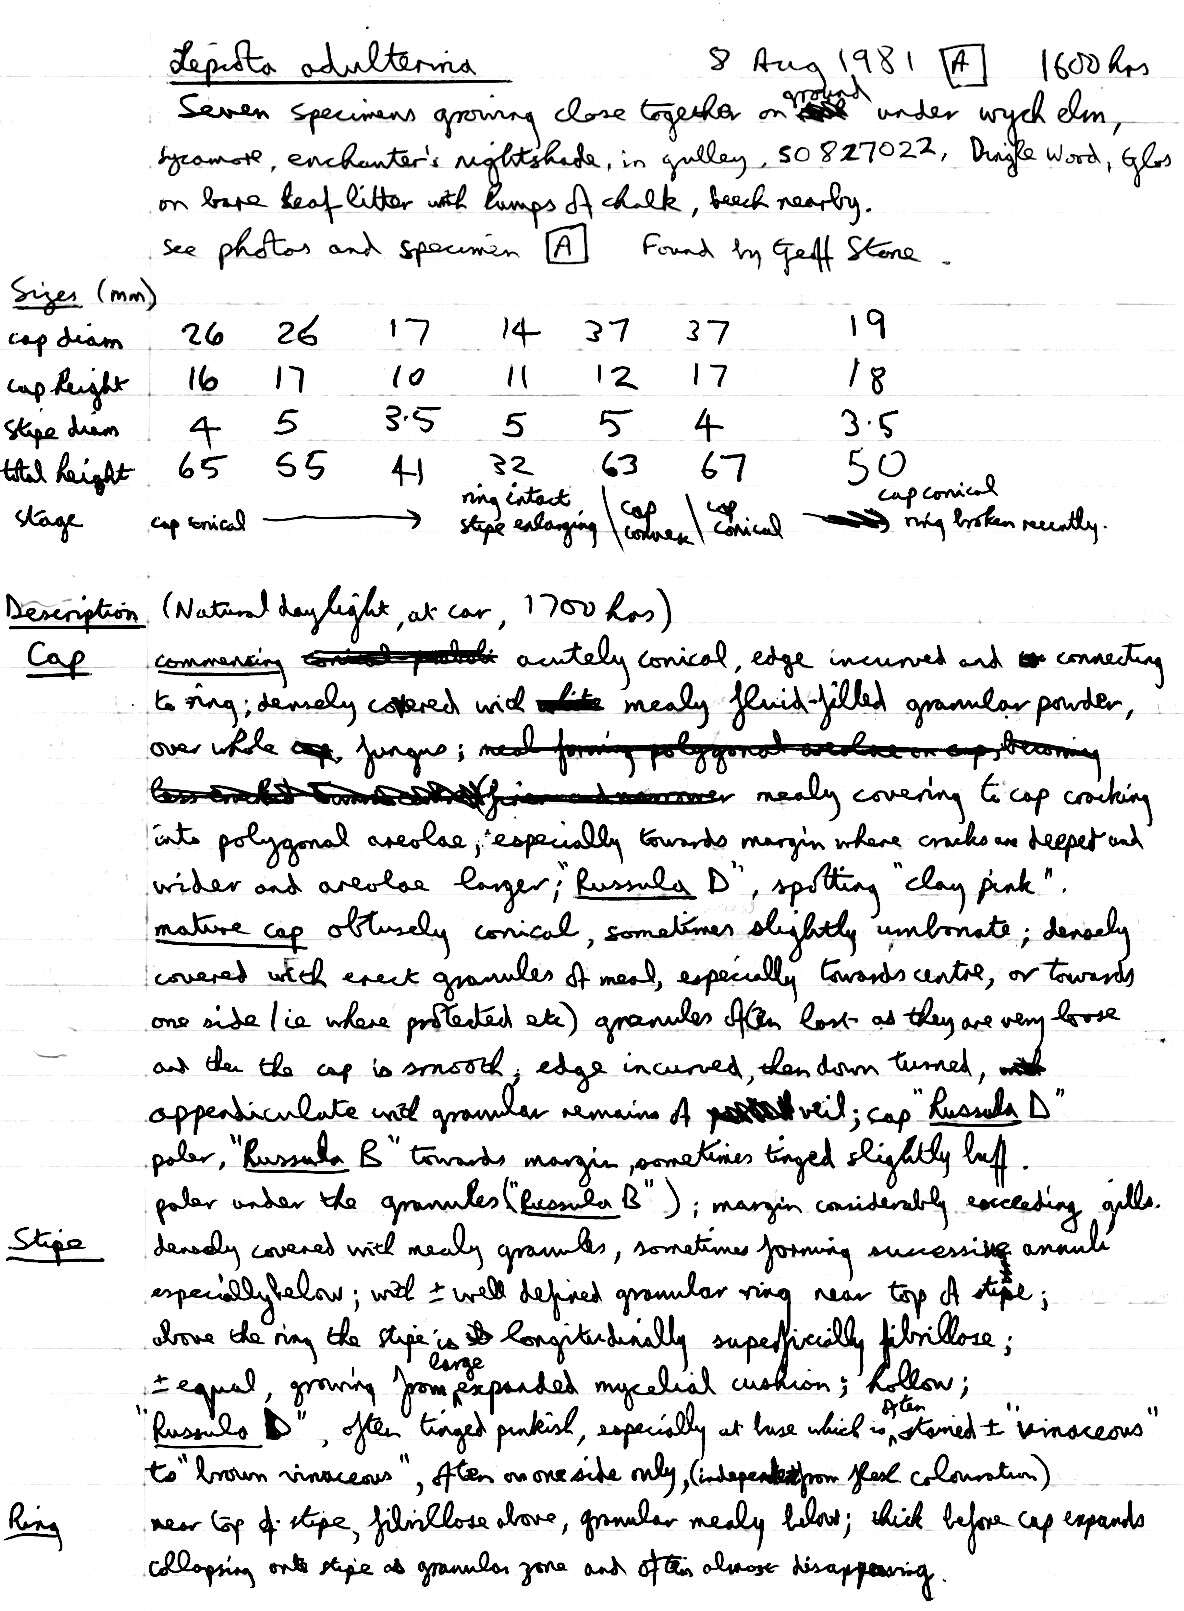 Lepiota adulterina 8 Aug 1981 A 1600 hrs
Seven specimens growing close together on ground under wych elm,
sycamore, enchanter's nightshade, in gulley, SO 827022, Dingle Wood, Glos
on bare leaf litter with lumps of chalk, beech nearby.
see photos and specimen A Found by Geoff Stone.
Sizes (mm)
cap diam 26 26 17 14 37 37 19
cap height 16 17 10 11 12 17 18
stipe diam 4 5 3.5 5 5 4 3.5
total height 65 55 41 32 63 67 50
stage cap conical → ring intact stipe enlarging / cap convex / cap conical cap conical ring broken recently.
Description (Natural daylight, at car, 1700 hrs)
Cap commencing acutely conical, edge incurved and connecting
to ring; densely covered with mealy fluid-filled granular powder,
over whole fungus; meal forming polygonal areolae on cap, becoming
mealy covering to cap cracking
into polygonal areolae, especially towards margin where cracks are deeper and
wider and areolae larger; "Russula D", spotting "clay pink".
mature cap obtusely conical, sometimes slightly umbonate; densely
covered with erect granules of meal, especially towards centre, or towards
one side (ie where protected etc) granules often lost as they are very loose
and then the cap is smooth; edge incurved, then down turned,
appendiculate with granular remains of veil; cap "Russula D"
paler, "Russula B" towards margin, sometimes tinged slightly buff.
paler under the granules ("Russula B"); margin considerably exceeding gills.
Stipe densely covered with mealy granules, sometimes forming successive annuli
especially below; with ± well defined granular ring near top of stipe;
above the ring the stipe is longitudinally superficially fibrillose;
± equal, growing from large expanded mycelial cushion; hollow;
"Russula D", often tinged pinkish, especially at base which is often stained ± "vinaceous"
to "brown vinaceous", often on one side only, (independent from flesh colouration)
Ring near top of stipe, fibrillose above, granular mealy below; thick before cap expands
collapsing onto stipe as granular zone and often almost disappearing.